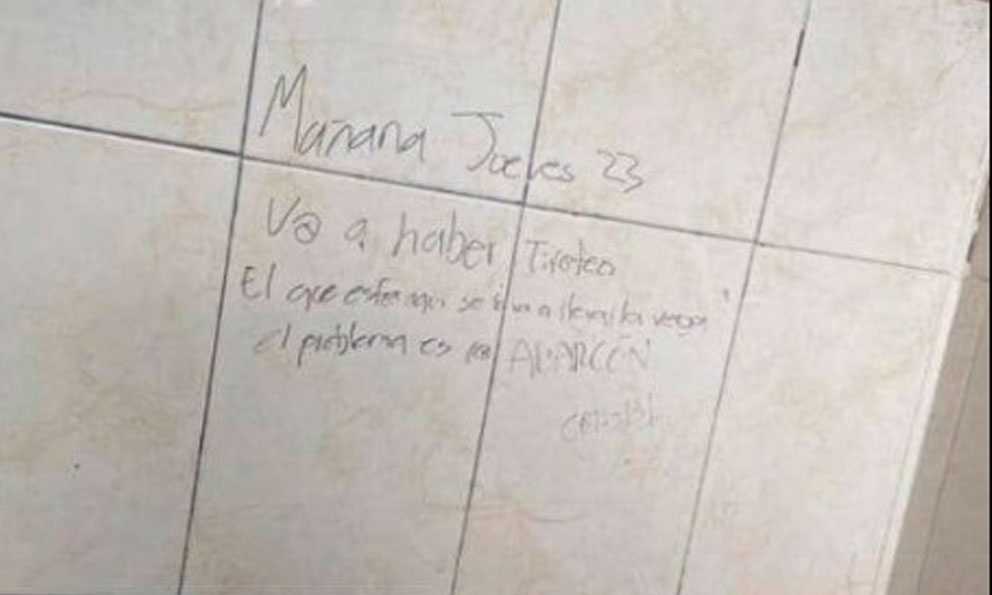 Mañana Jueves 23
Va a haber Tiroteo
El que este aqui se va a llevar la verga
el problema es con ALARCÓN